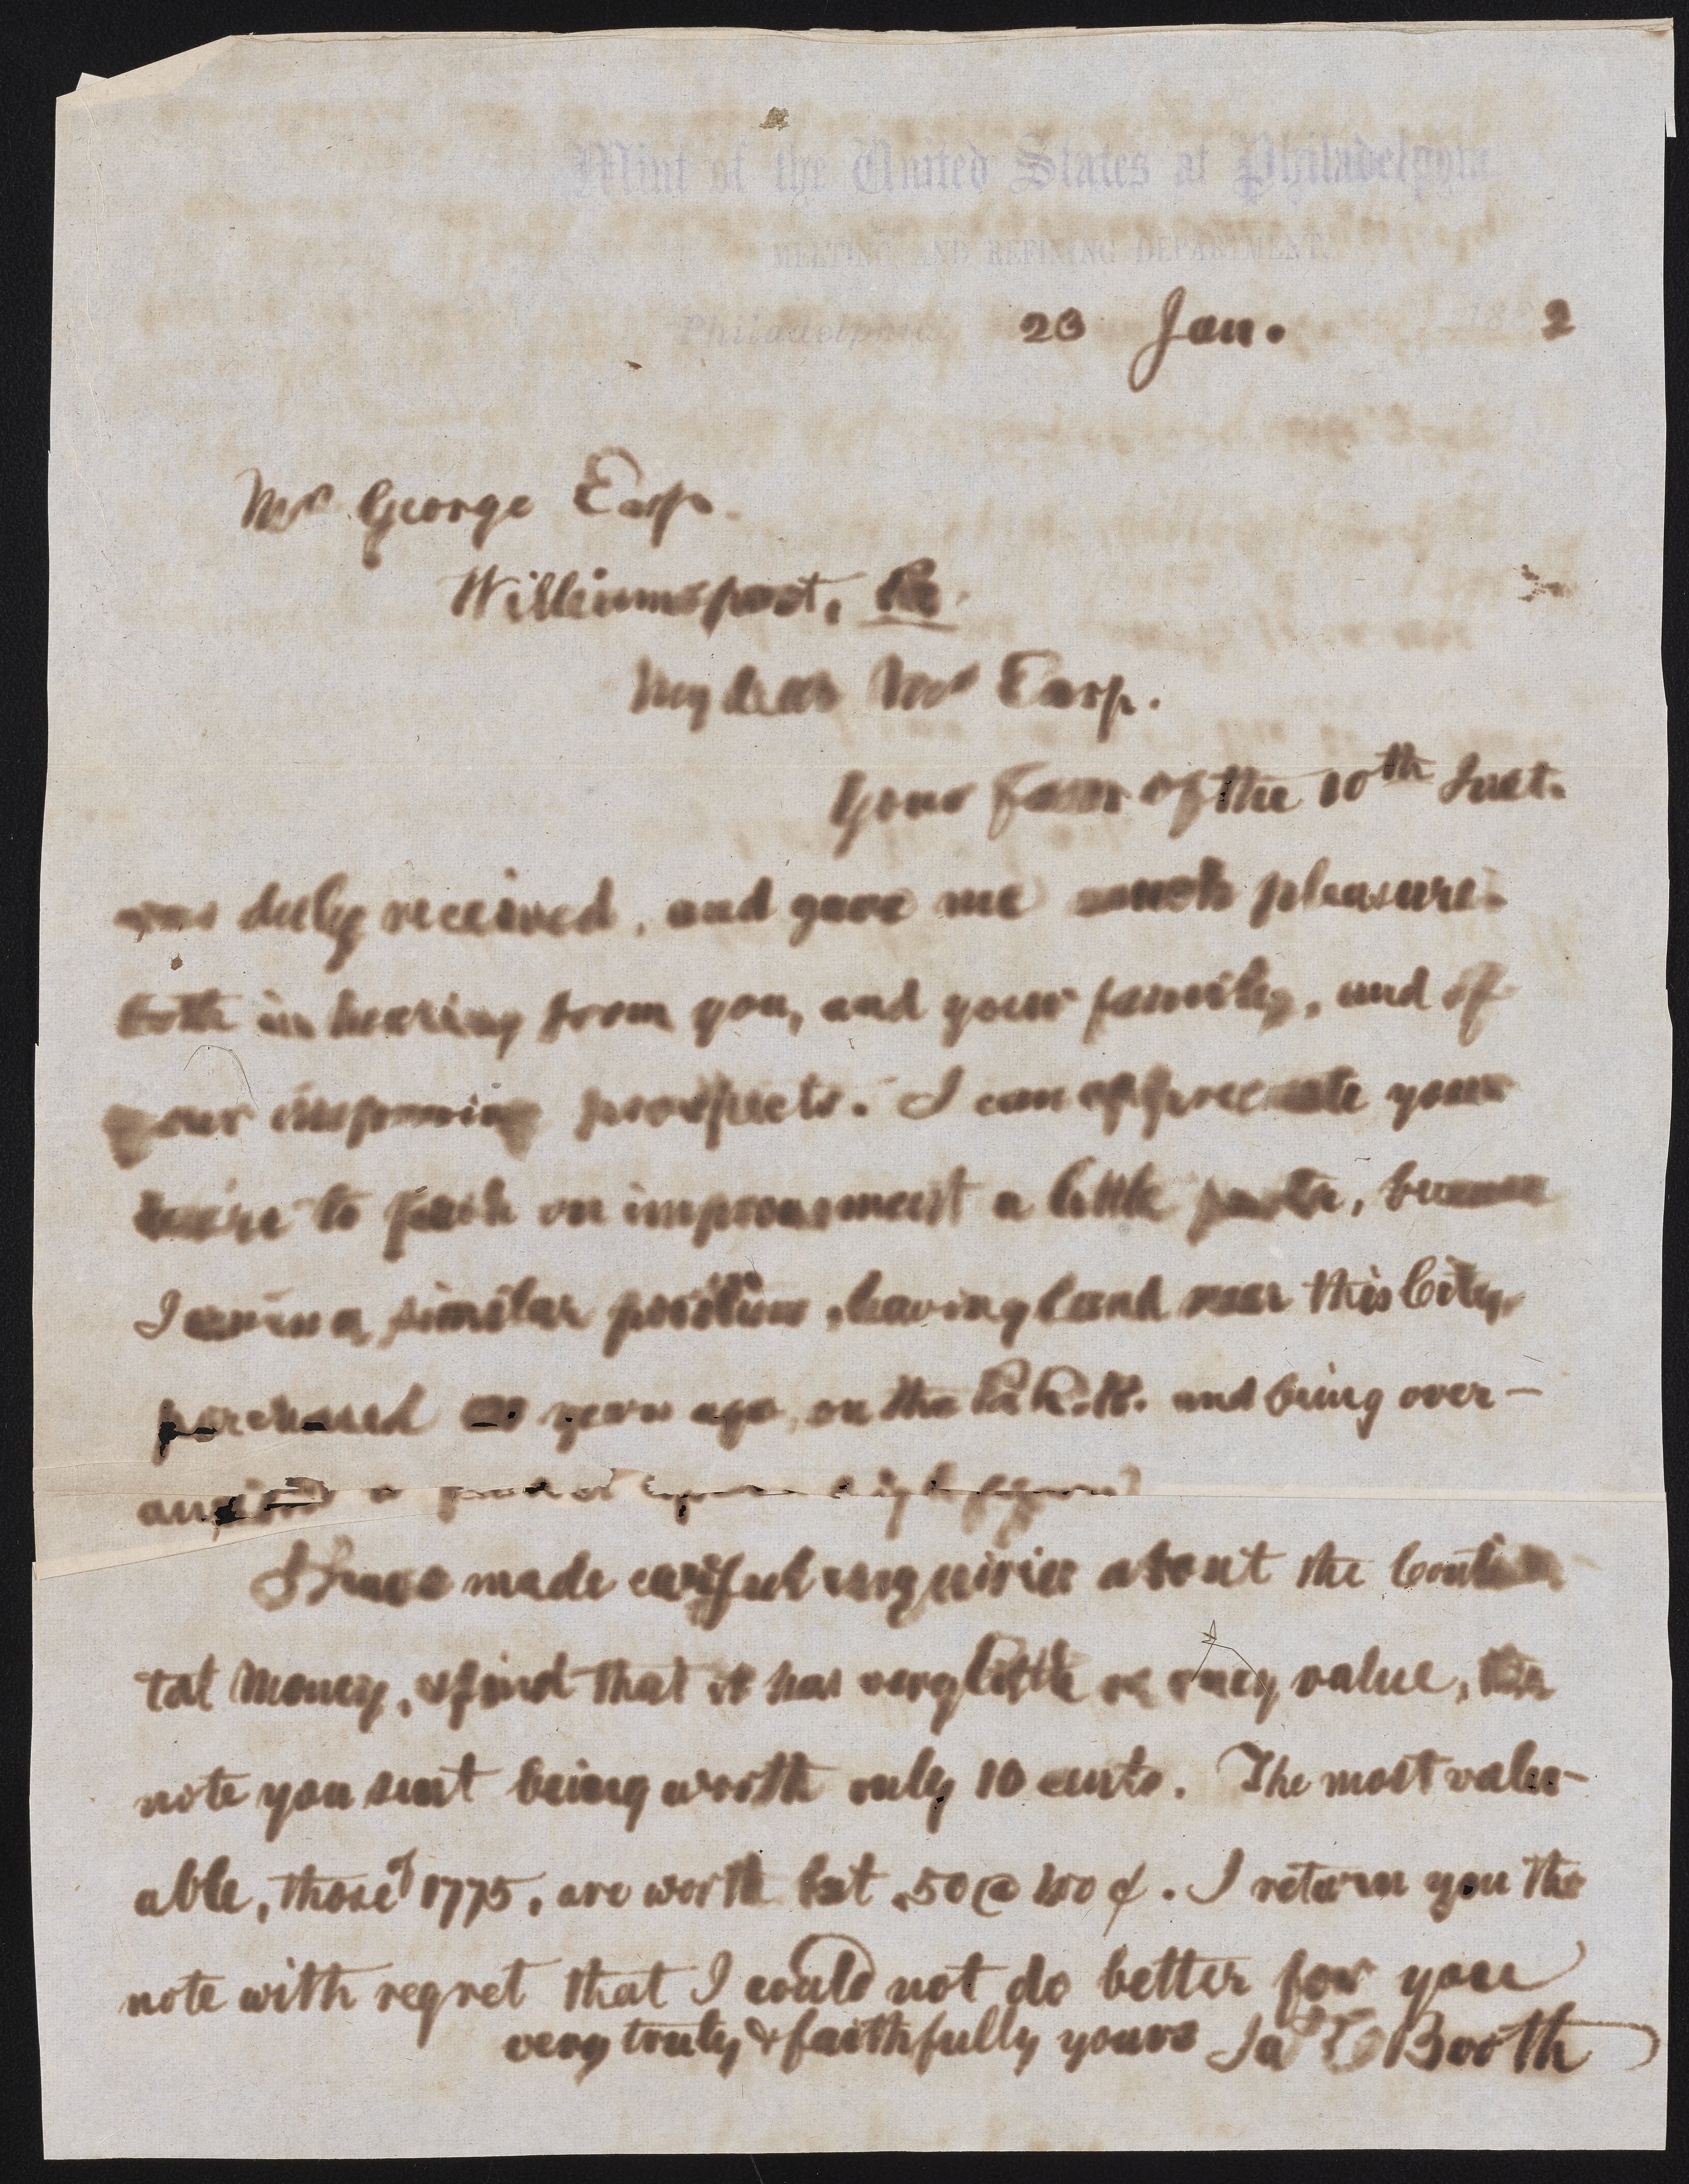 Mint of the United States at Philadelphia
MELTING AND REFINING DEPARTMENT.
Philadelphia 23 Jan. 18 2
Mr George Earp.
Williamsport, Pa.
My dear Mr Earp.
Your favor of the 10th Inst.
was duly received, and gave me much pleasure
both in hearing from you, and your family, and of
your improving prospects. I can appreciate your
desire to push on improvement a little faster, because
I am in a similar position, having land near this City,
purchased years ago, on the Pa R.R. and being over-
anxious a
I have made careful inquiries about the
tal Money, & find that it has very little if any value, the
note you sent being worth only 10 cents. The most valu-
able, those of 1775, are worth but 50 @ ¢. I return you the
note with regret that I could not do better for you
very truly & faithfully yours Jas C Booth